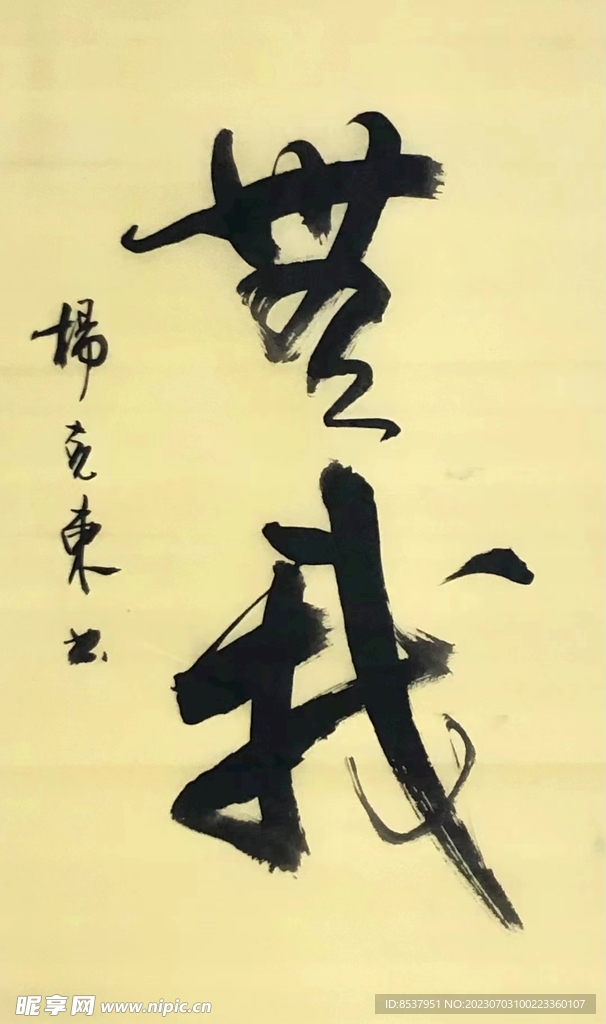 無我
楊克東书
昵享网 www.nipic.cn
ID:8537951 NO:20230703100223360107